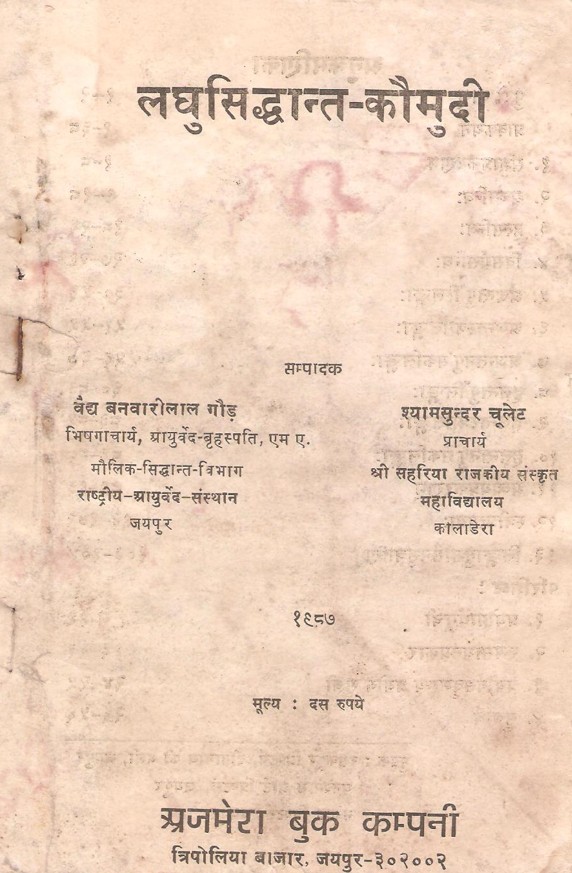 लघुसिद्धान्त-कौमुदी
सम्पादक
वैद्य बनवारीलाल गौड़
भिषगाचार्य, आयुर्वेद-बृहस्पति, एम ए.
मौलिक-सिद्धान्त-विभाग
राष्ट्रीय-आयुर्वेद-संस्थान
जयपुर
श्यामसुन्दर चूलेट
प्राचार्य
श्री सहरिया राजकीय संस्कृत
महाविद्यालय
कालाडेरा
१९८७
मूल्य : दस रुपये
अजमेरा बुक कम्पनी
त्रिपोलिया बाजार, जयपुर-३०२००२